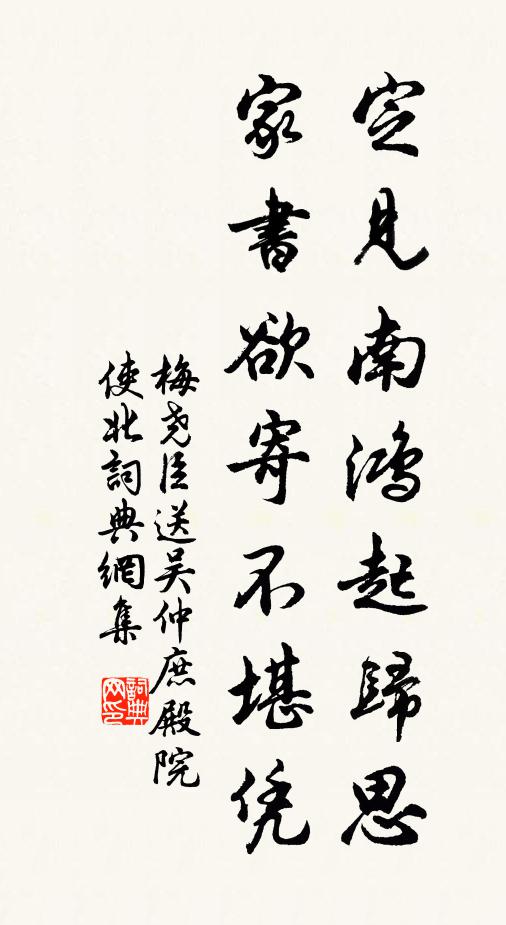 定見南鴻起歸思
家書欲寄不堪凭
梅尧臣送吴仲庶殿院
使北詞典網集
詞典
网印